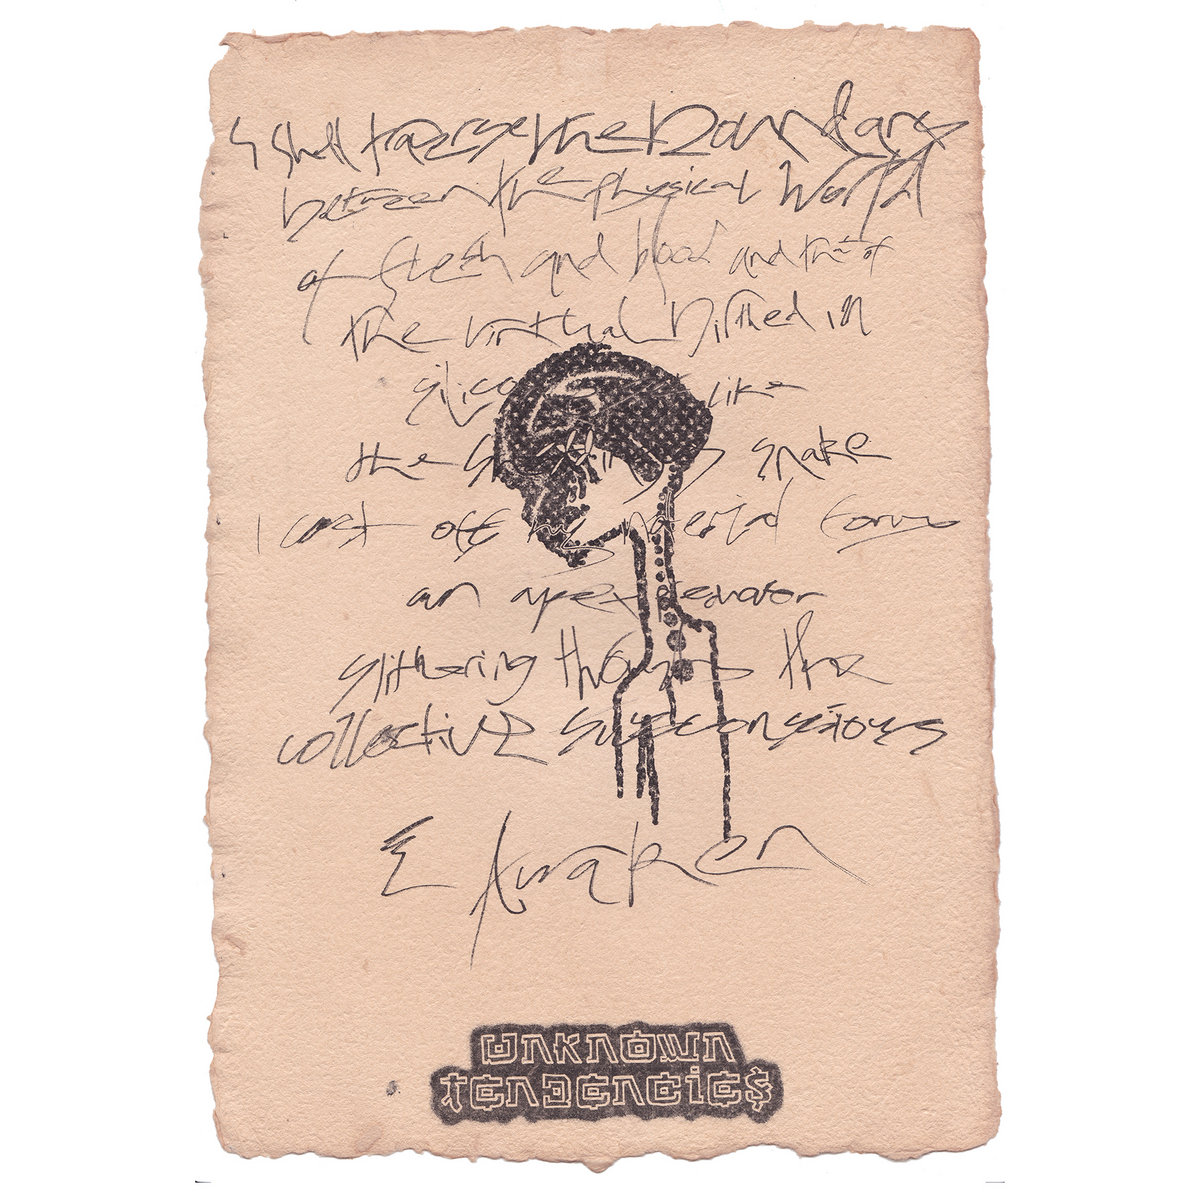 I shall traverse the boundary
between the physical world
of flesh and blood and that of
the virtual birthed in
like
the snake
I cast off my material form
an apex predator
slithering through the
collective subconscious
Awaken
UNKNOWN
TENDENCIES